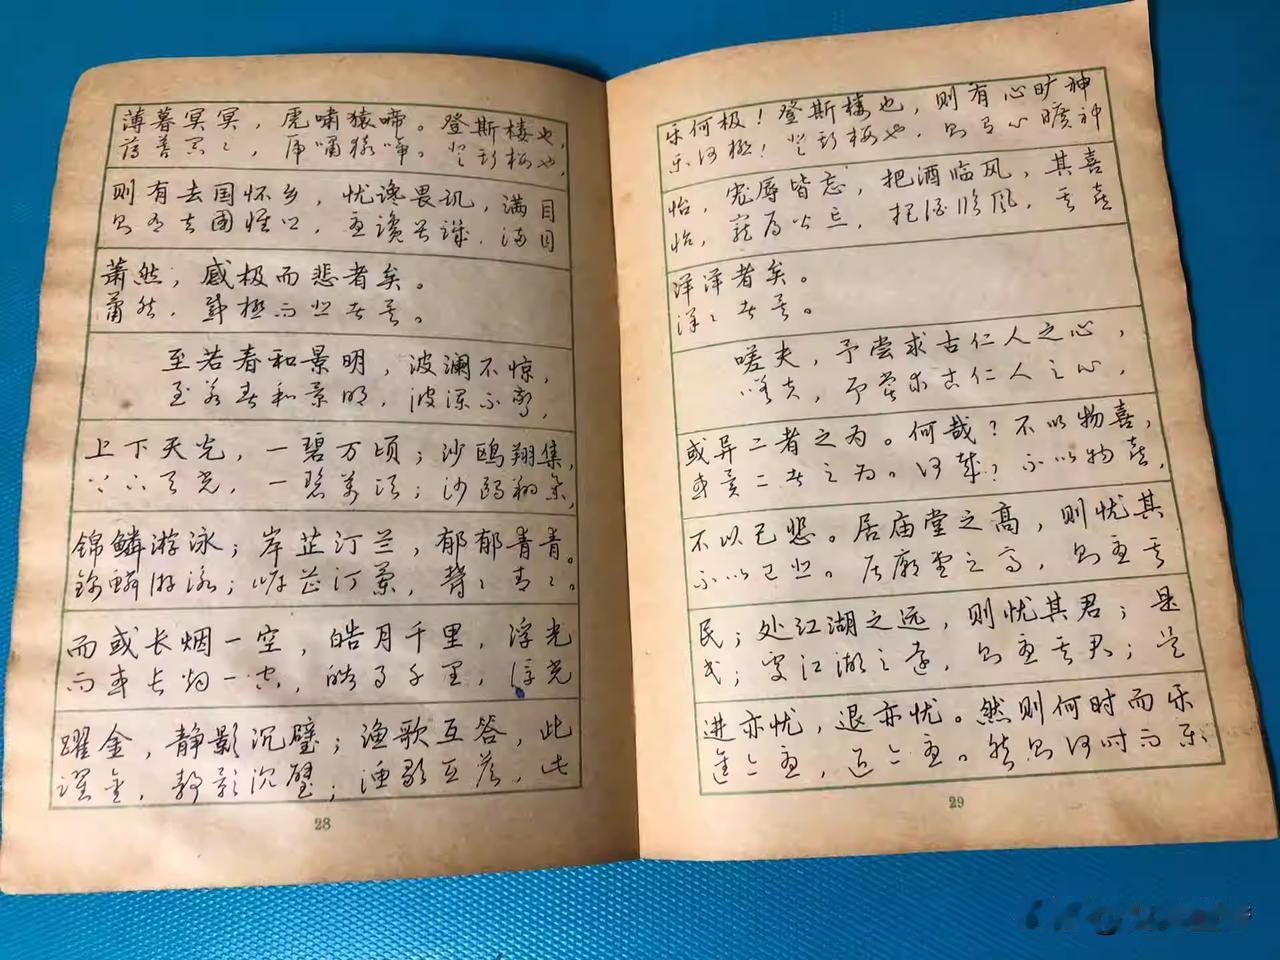 薄暮冥冥，虎啸猿啼。登斯楼也，
薄暮冥々，虎嘯猿啼。登斯楼也，
则有去国怀乡，忧谗畏讥，满目
则有去國懷乡，忧谗畏譏，满目
萧然；感极而悲者矣。
萧然，感極而悲者矣。
至若春和景明，波澜不惊，
至若春和景明，波澜不驚，
上下天光，一碧万顷；沙鸥翔集，
上下天光，一碧萬顷；沙鸥翔集，
锦鳞游泳；岸芷汀兰，郁郁青青。
锦鳞游泳；岸芷汀蘭，鬱々青々。
而或长烟一空，皓月千里，浮光
而或长烟一空，皓月千里，浮光
躍金，静影沉璧；渔歌互答，此
躍金，静影沉璧；渔歌互答，此
28
乐何极！登斯楼也，则有心旷神
乐何極！登斯楼也，则有心曠神
怡，宠辱皆忘，把酒临风，其喜
怡，寵辱皆忘，把酒临風，其喜
洋洋者矣。
洋々者矣。
嗟夫，予尝求古仁人之心，
嗟夫，予嘗求古仁人之心，
或异二者之为。何哉？不以物喜，
或異二者之为。何哉；不以物喜，
不以己悲。居庙堂之高，则忧其
不以己悲。居廟堂之高，则忧其
民；处江湖之远，则忧其君；是
民；处江湖之远，则忧其君；是
进亦忧，退亦忧。然则何时而乐
進亦忧，退亦忧。然则何时而乐
29